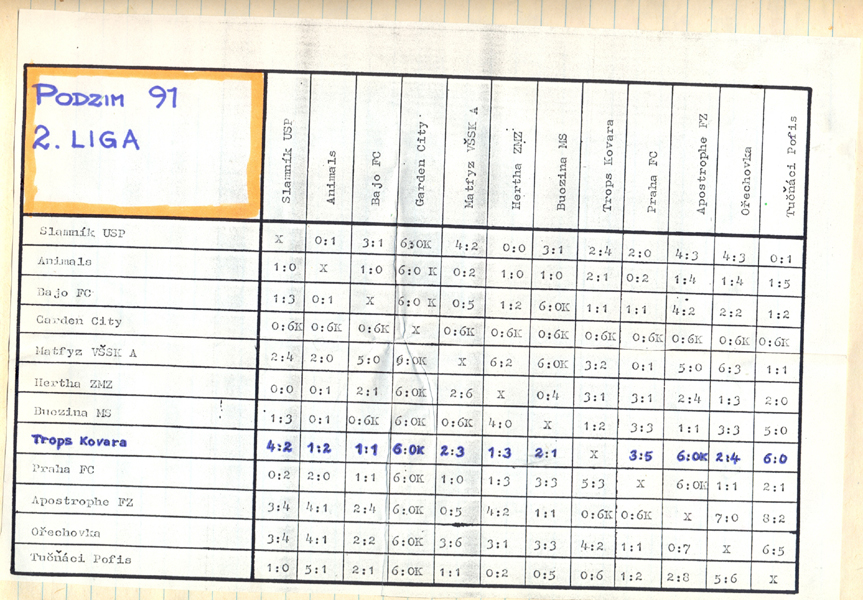 PODZIM 91
2. LIGA
Slamník USP
Animals
Bajo FC
Garden City
Matfyz VŠSK A
Hertha ZMZ
Buozina MS
Trops Kovara
Praha FC
Apostrophe FZ
Ořechovka
Tučňáci Pofis
Slamník USP X 0:1 3:1 6:0K 4:2 0:0 3:1 2:4 2:0 4:3 4:3 0:1
Animals 1:0 X 1:0 6:0 K 0:2 1:0 1:0 2:1 0:2 1:4 1:4 1:5
Bajo FC 1:3 0:1 X 6:0 K 0:5 1:2 6:0K 1:1 1:1 4:2 2:2 1:2
Garden City 0:6K 0:6K 0:6K X 0:6K 0:6K 0:6K 0:6K 0:6K 0:6K 0:6K 0:6K
Matfyz VŠSK A 2:4 2:0 5:0 6:0K X 6:2 6:0K 3:2 0:1 5:0 6:3 1:1
Hertha ZMZ 0:0 0:1 2:1 6:0K 2:6 X 0:4 3:1 3:1 2:4 1:3 2:0
Buozina MS 1:3 0:1 0:6K 6:0K 0:6K 4:0 X 1:2 3:3 1:1 3:3 5:0
Trops Kovara 4:2 1:2 1:1 6:0K 2:3 1:3 2:1 X 3:5 6:0K 2:4 6:0
Praha FC 0:2 2:0 1:1 6:0K 1:0 1:3 3:3 5:3 X 6:0K 1:1 2:1
Apostrophe FZ 3:4 4:1 2:4 6:0K 0:5 4:2 1:1 0:6K 0:6K X 7:0 8:2
Ořechovka 3:4 4:1 2:2 6:0K 3:6 3:1 3:3 4:2 1:1 0:7 X 6:5
Tučňáci Pofis 1:0 5:1 2:1 6:0K 1:1 0:2 0:5 0:6 1:2 2:8 5:6 X